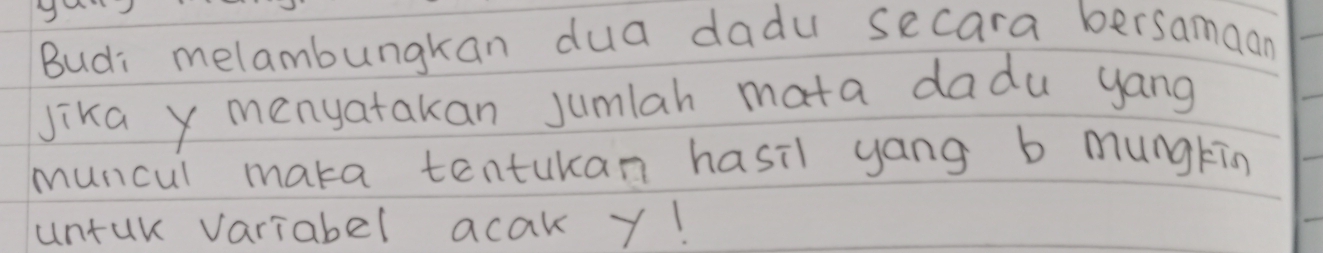 Budi melambungkan dua dadu secara bersamaan
Jika y menyatakan jumlah mata dadu yang
muncul maka tentukan hasil yang b mungkin
untuk variabel acak y!